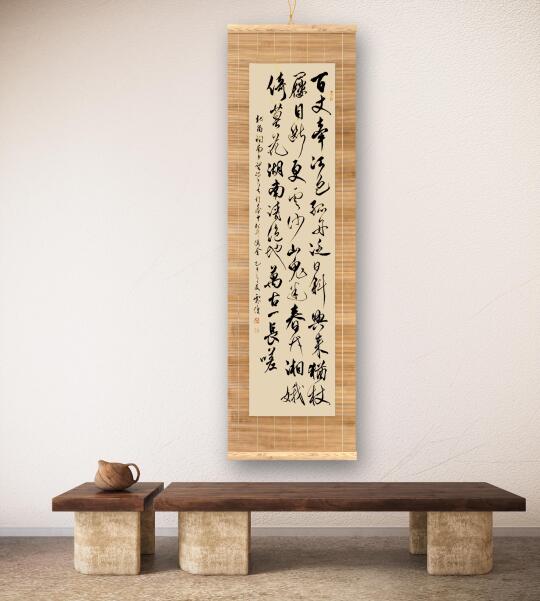 百丈牽江色孤舟泛日斜興來猶杖
屨目斷更雲沙山鬼迷春竹湘娥
倚暮花湖南清絕地萬古一長嗟
杜甫祠南夕望